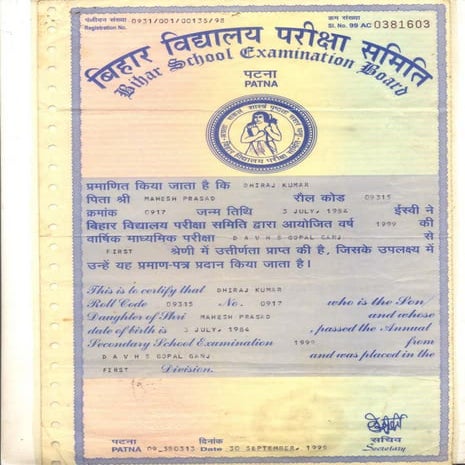 पंजीयन संख्या 0931/001/00135/98
Registration No.
क्रम संख्या
Sl. No. 99 AC 0381603
बिहार विद्यालय परीक्षा समिति
Bihar School Examination Board
पटना
PATNA
प्रमाणित किया जाता है कि DHIRAJ KUMAR
पिता श्री MAHESH PRASAD रौल कोड 09315
क्रमांक 0917 जन्म तिथि 3 JULY, 1984 ईस्वी ने
बिहार विद्यालय परीक्षा समिति द्वारा आयोजित वर्ष 1999 की
वार्षिक माध्यमिक परीक्षा D A V H S GOPAL GANJ से
FIRST श्रेणी में उत्तीर्णता प्राप्त की है, जिसके उपलक्ष्य में
उन्हें यह प्रमाण-पत्र प्रदान किया जाता है।
This is to certify that DHIRAJ KUMAR
Roll Code 09315 No. 0917 who is the Son/
Daughter of Shri MAHESH PRASAD and whose
date of birth is 3 JULY, 1984 , passed the Annual
Secondary School Examination 1999 from
D A V H S GOPAL GANJ and was placed in the
FIRST Division.
पटना दिनांक
PATNA 09_380313 Date 30 SEPTEMBER, 1999
सचिव
Secretary